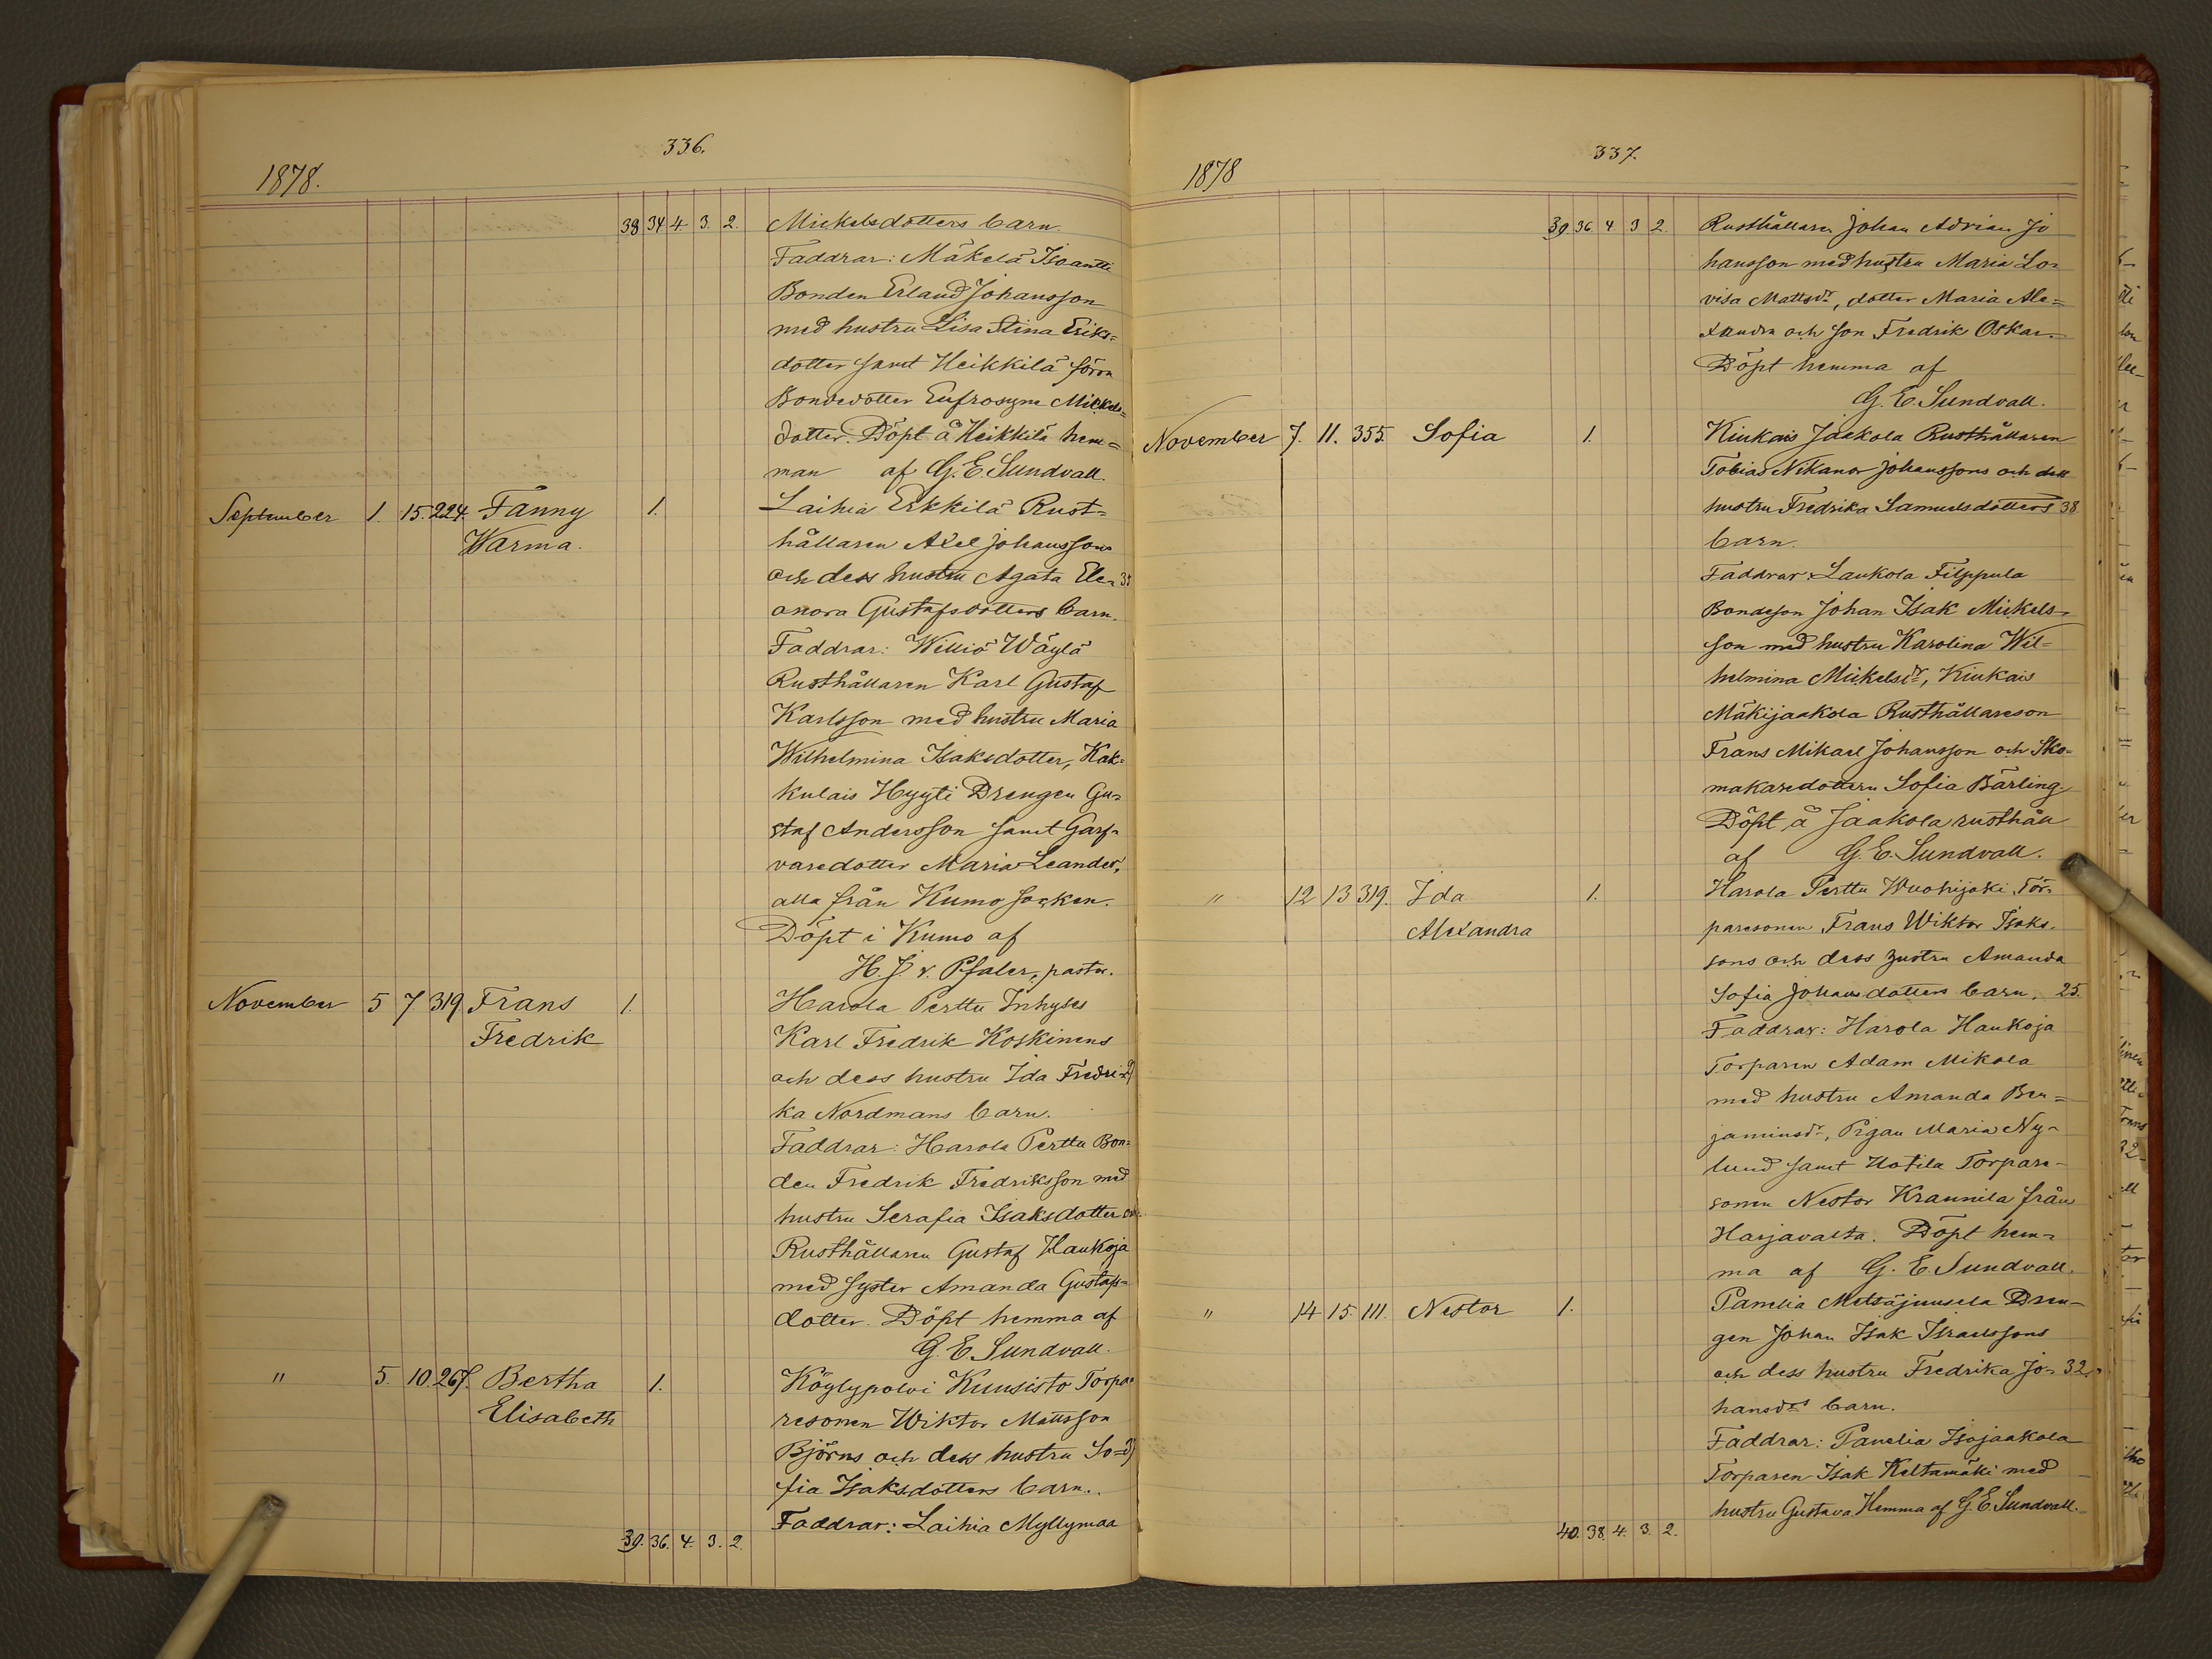 336.
1878.
38 34 4. 3. 2. Mickelsdotters barn.
Faddrar: Mäkelä Isoantti
Bonden Erland Johansson
med hustru Lisa Stina Eriks=
dotter samt Heikkilä
Bondedotter Eufrosyne Mickels=
dotter. Döpt å Heikkilä hem=
man af G. E. Sundvall.
September 1. 15. 224. Fanny 1. Laihia Erkkilä Rust=
Warma. hållaren Axel Johanssons
och dess hustru Agata Ele=
onora Gustafsdotters barn.
Faddrar: Williö Wäylä
Rusthållaren Karl Gustaf
Karlsson med hustru Maria
Wilhelmina Isaksdotter, Kak=
kulais Hyyti Drengen Gu=
staf Andersson samt Garf=
varedotter Maria Leander,
alla från Kumo socken.
Döpt i Kumo af
H. J. v. Pfaler, pastor.
November 5 7 319 Frans 1. Harola Perttu Inhyses
Fredrik Karl Fredrik Koskinens
och dess hustru Ida Fredri=
ka Nordmans barn.
Faddrar: Harola Perttu Bon=
den Fredrik Fredriksson med
hustru Serafia Isaksdotter och
Rusthållaren Gustaf Haukoja
med syster Amanda Gustafs=
dotter. Döpt hemma af
G. E. Sundvall.
" 5. 10. 267. Bertha 1. Köylypolvi Kuusisto Torpa=
Elisabeth resonen Wiktor Mattsson
Björns och dess hustru So=
fia Isaksdotters barn.
Faddrar: Laihia Myllymaa
39. 36. 4. 3. 2.
337.
1878
39. 36. 4 3 2. Rusthållaren Johan Adrian Jo
hansson med hustru Maria Lo=
visa Mattsdr, dotter Maria Ale=
xandra och son Fredrik Oskar.
Döpt hemma af
G. E. Sundvall.
November 7. 11. 355. Sofia 1. Kiukais Jaakola Rusthållaren
Tobias Nikanor Johanssons och dess
hustru Fredrika Samuelsdotters 38
barn.
Faddrar: Laukola Filppula
Bondeson Johan Isak Mickels=
son med hustru Karolina Wil=
helmina Mickelsdr, Kiukais
Mäkijaakola Rusthållareson
Frans Mikael Johansson och Sko=
makaredottern Sofia Bärling.
Döpt å Jaakola rusthåll
af G. E. Sundvall.
" 12 13 319. Ida 1. Harola Perttu Wuohijoki Tor=
Alexandra paresonen Frans Wiktor Isaks=
sons och dess hustru Amanda
Sofia Johansdotters barn. 25.
Faddrar: Harola Haukoja
Torparen Adam Mikola
med hustru Amanda Ben=
jaminsdr, Pigan Maria Ny=
lund samt Uotila Torpare=
sonen Nestor Krannila från
Harjavalta. Döpt hem=
ma af G. E. Sundvall.
" 14 15. 111. Nestor 1. Panelia Metsäjuusela Dren=
gen Johan Isak Israelssons
och dess hustru Fredrika Jo= 32.
hansdrs barn.
Faddrar: Panelia Isojaakola
Torparen Isak Keltamäki med
hustru Gustava. Hemma af G. E. Sundvall.
40. 38. 4. 3. 2.